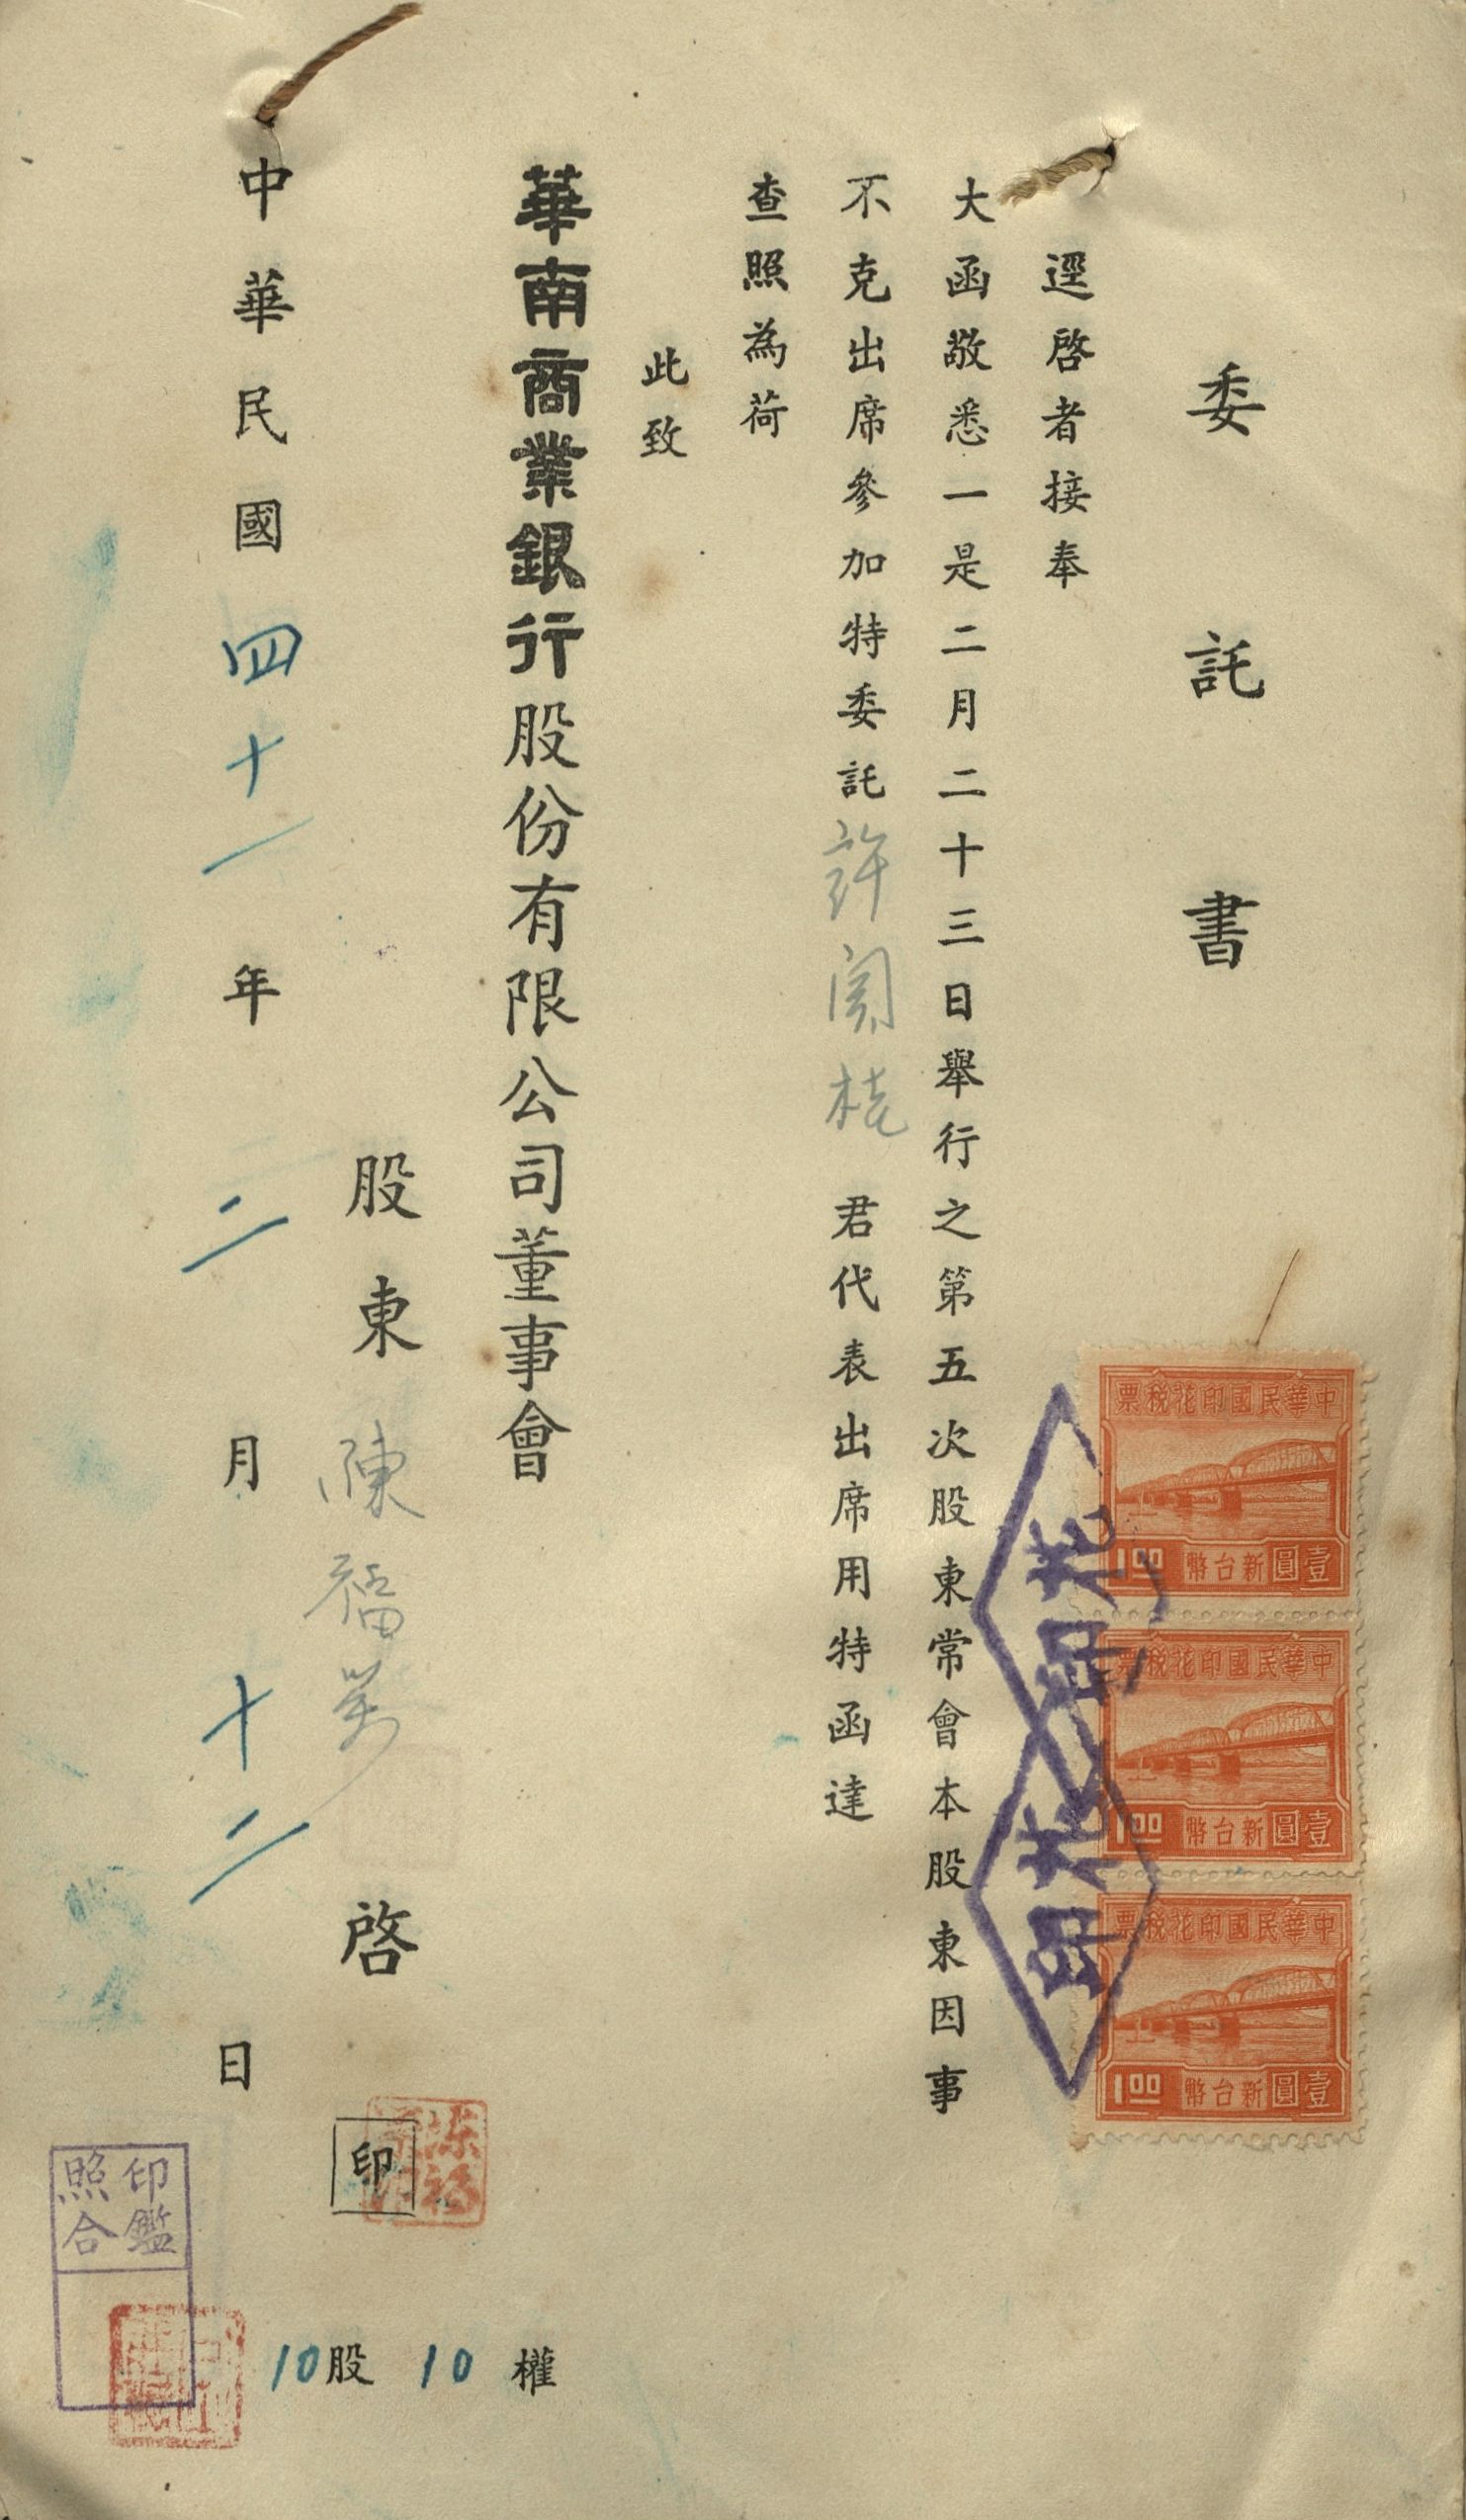 委託書
逕啓者接奉
大函敬悉一是二月二十三日舉行之第五次股東常會本股東因事
不克出席參加特委託許 君代表出席用特函達
查照為荷
此致
華南商業銀行股份有限公司董事會
股東 陳福 啓
印
中華民國四十一年二月十二日
10股 10權
印鑑
照合
中華民國印花稅票
壹圓新台幣 1.00
中華民國印花稅票
壹圓新台幣 1.00
中華民國印花稅票
壹圓新台幣 1.00